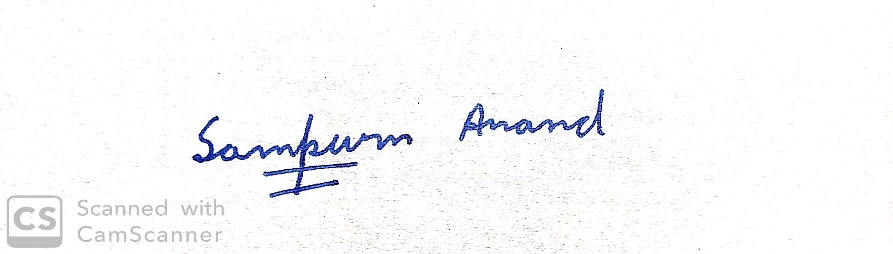 Sampurn Anand
CS Scanned with
CamScanner